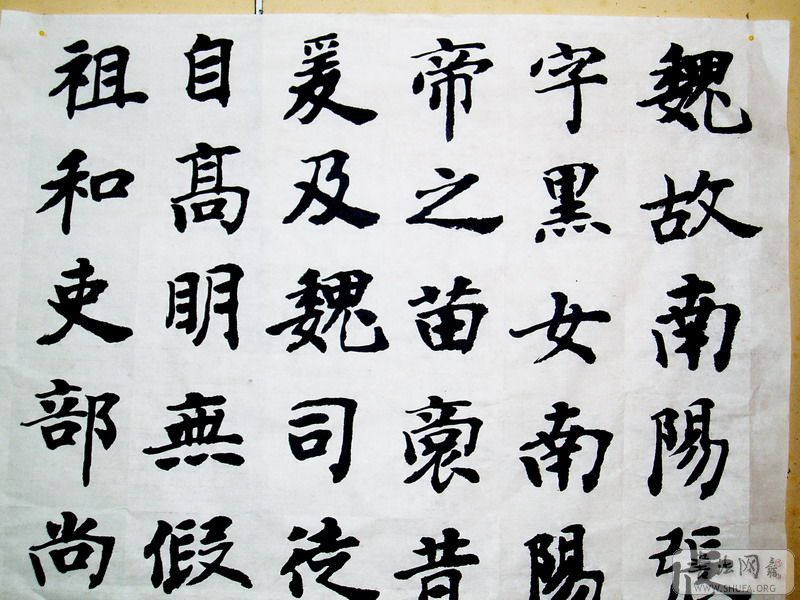 魏故南陽張
字黑女南陽
帝之苗裔昔
爰及魏司徒
自髙明無假
祖和吏部尚
书法网
WWW.SHUFA.ORG